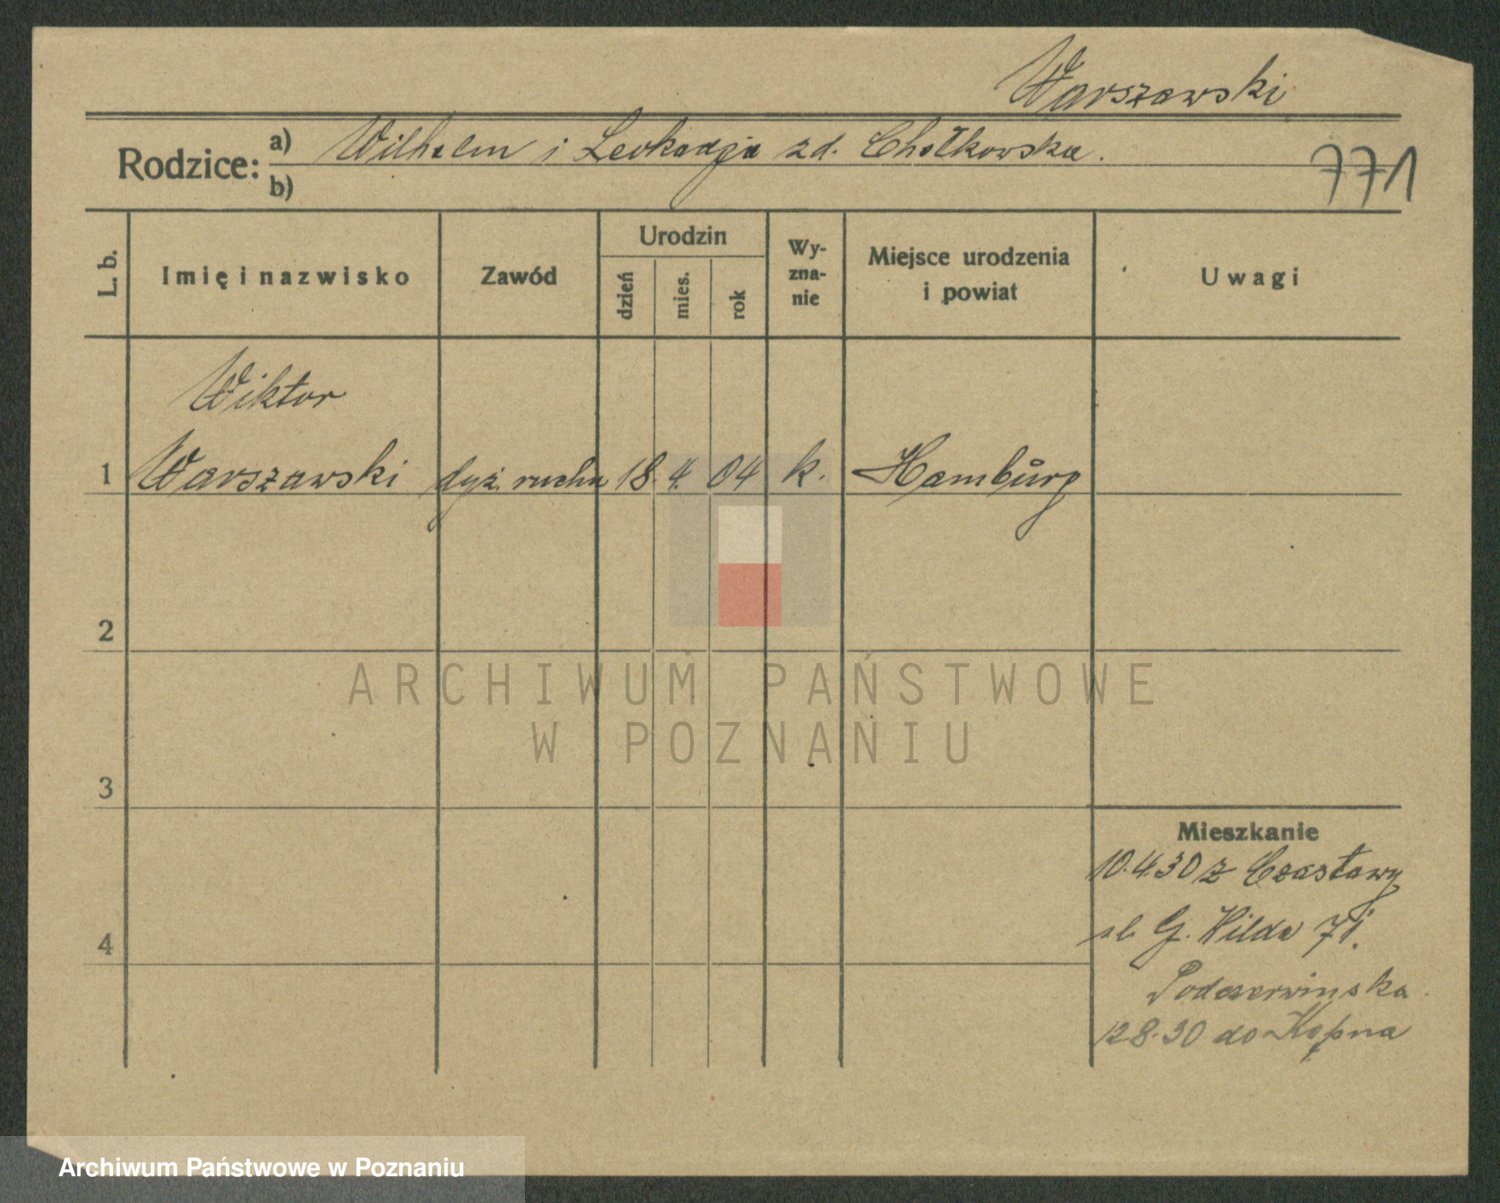 Warszawski
Rodzice: a) Wilhelm i Leokadja zd. Chełkowska.
b)
771
L. b.
Imię i nazwisko
Zawód
Urodzin
dzień
mies.
rok
Wy-
zna-
nie
Miejsce urodzenia
i powiat
Uwagi
Wiktor
1 Warszawski dyż. ruchu 18. 4. 04 k. Hamburg
2
ARCHIWUM PAŃSTWOWE
W POZNANIU
3
Mieszkanie
10.4.30 z Czastawy
4
ul. G. Wilda 71.
12.8.30 do Kępna
Archiwum Państwowe w Poznaniu